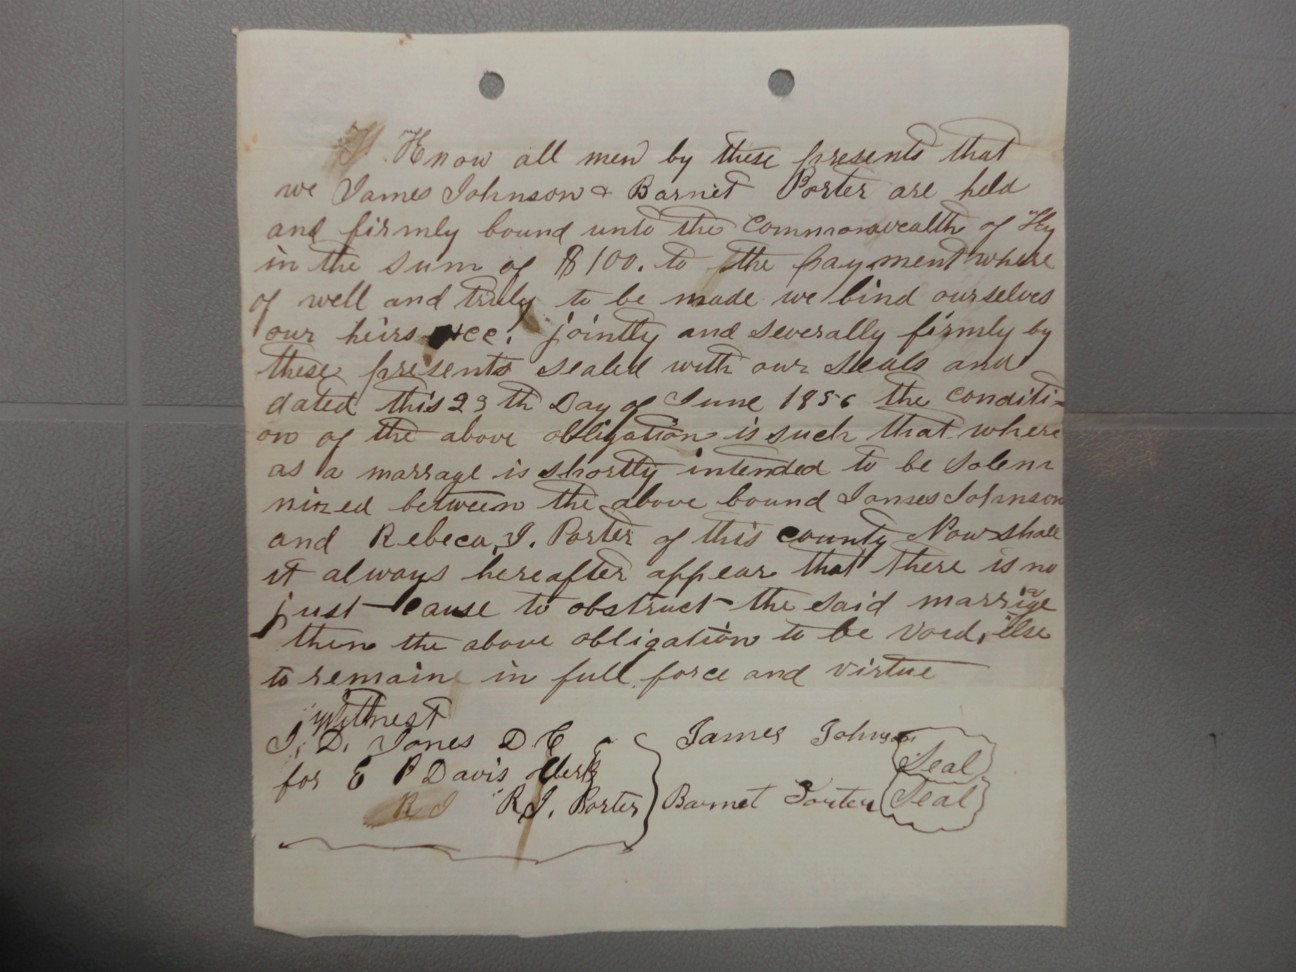 Know all men by these presents that
we James Johnson & Barnet Porter are held
and firmly bound unto the Commonwealth of Ky
in the sum of $100. to the payment where
of well and truly to be made we bind ourselves
our heirs &ce. jointly and severally firmly by
these presents sealed with our seals and
dated this 29th Day of June 1856 the conditi-
on of the above obligation is such that where
as a marrage is shortly intended to be solem
nized between the above bound James Johnson
and Rebeca J. Porter of this county Now shall
it always hereafter appear that there is no
just cause to obstruct the said marrige
then the above obligation to be void, else
to remaine in full force and virtue
Witnest
J. D. Jones D C
for E P Davis Clerk
R J R J. Porter
James Johnson Seal
Barnet Porter Seal